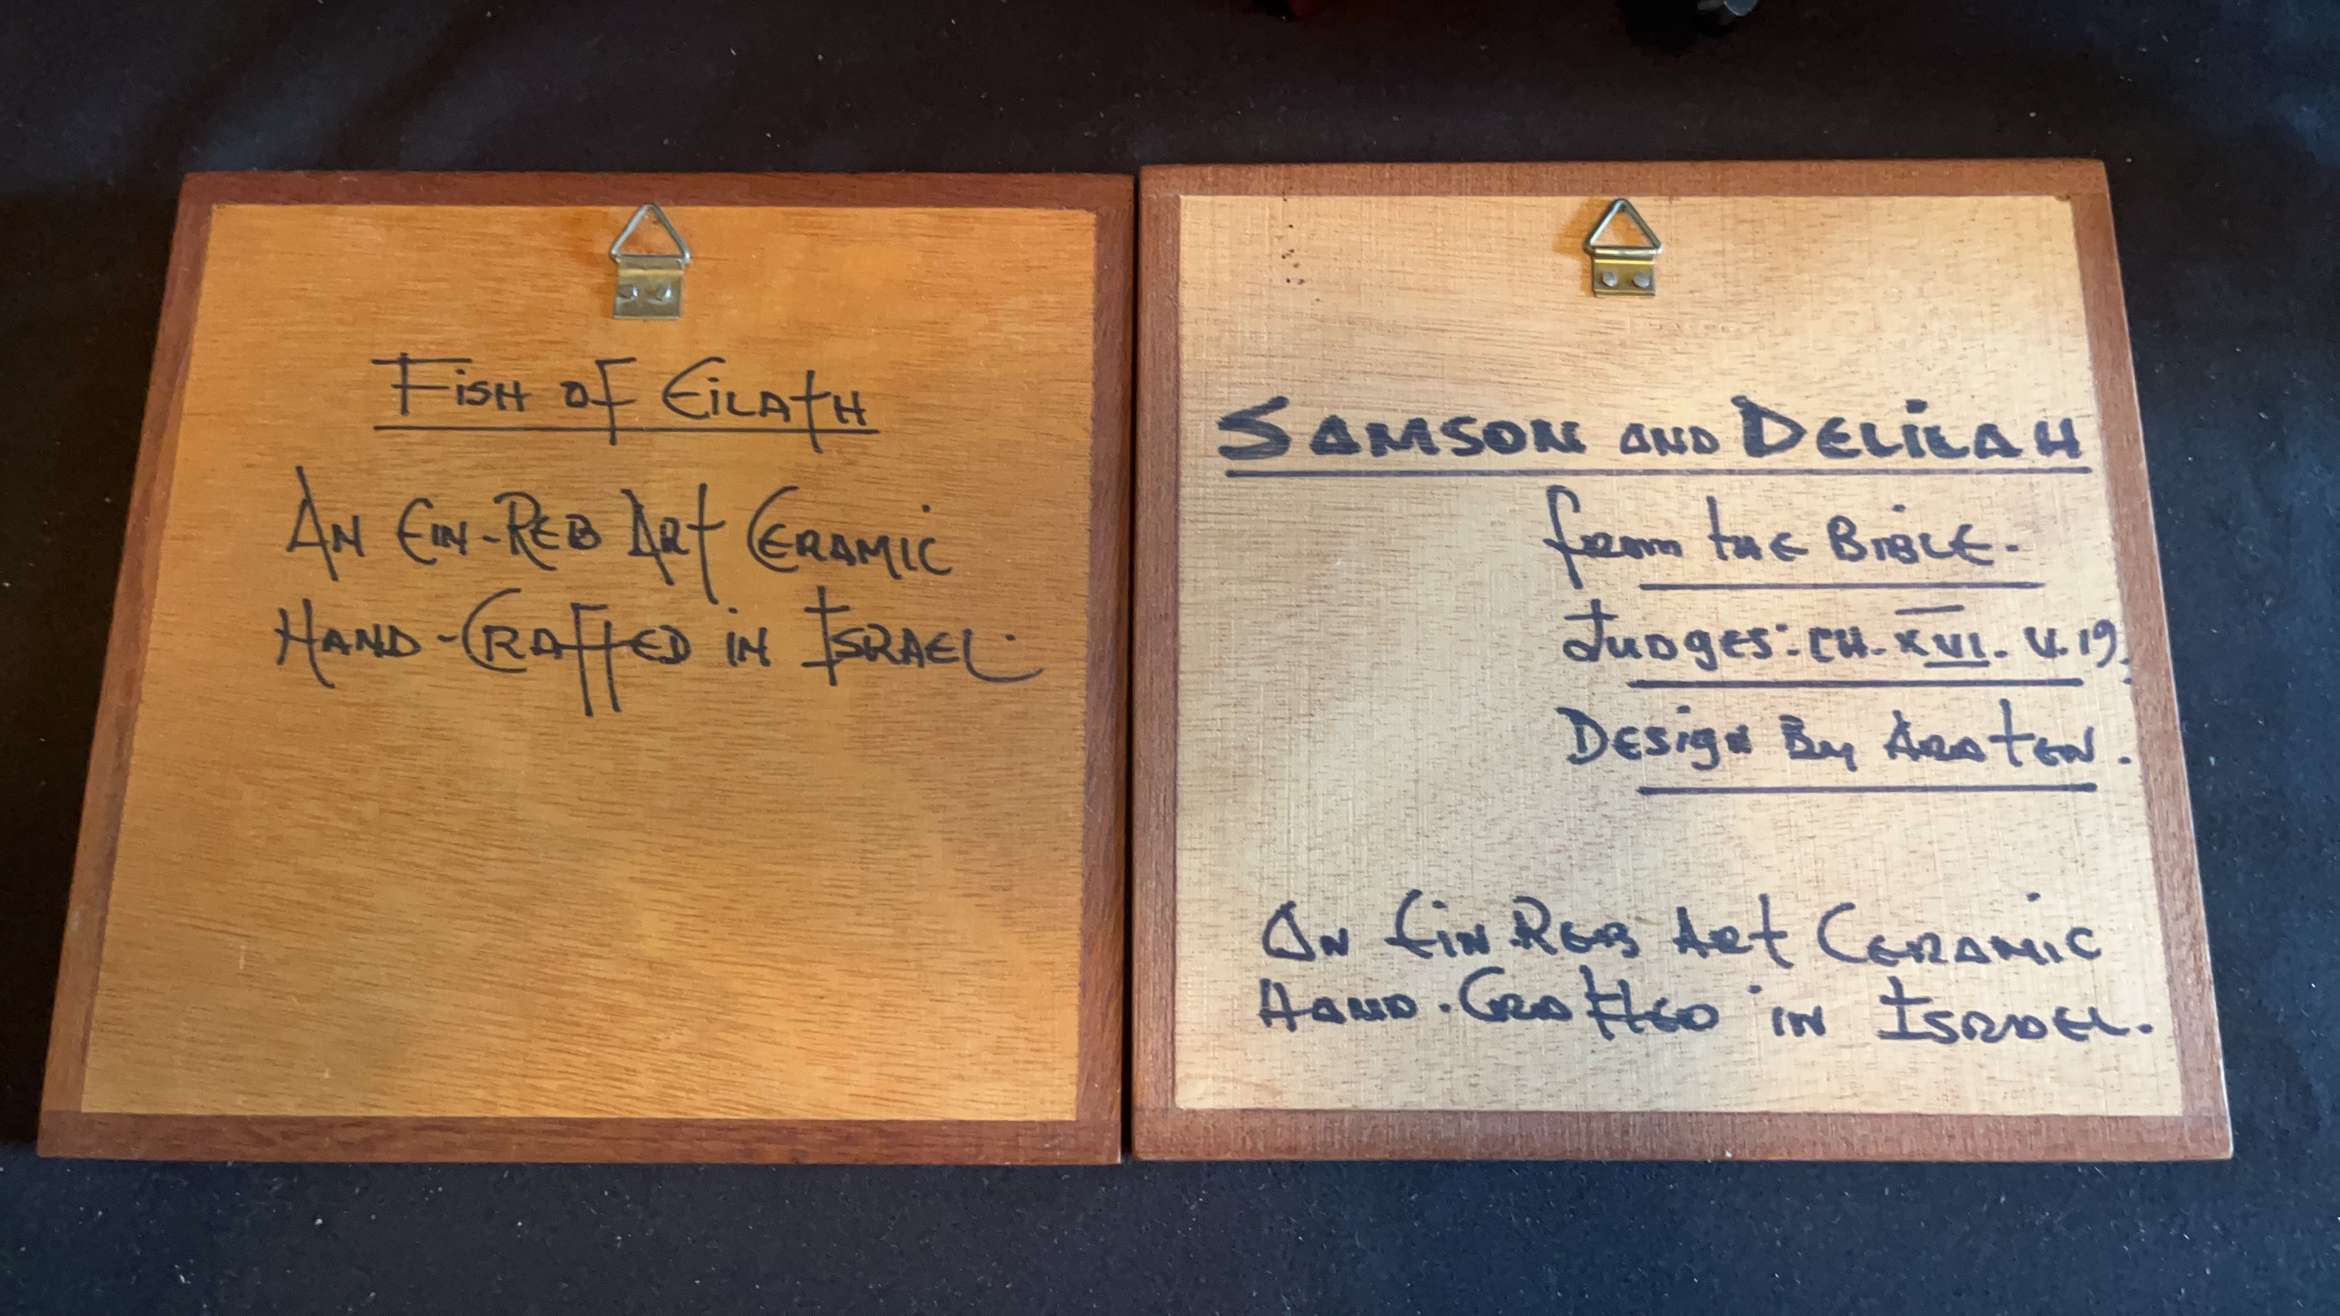 Fish of Eilath
An Ein-Reb Art Ceramic
Hand-Crafted in Israel.
Samson and Delilah
from the Bible.
Judges: CH. XVI. V. 19.
Design By
An Ein Reb Art Ceramic
Hand-Crafted in Israel.